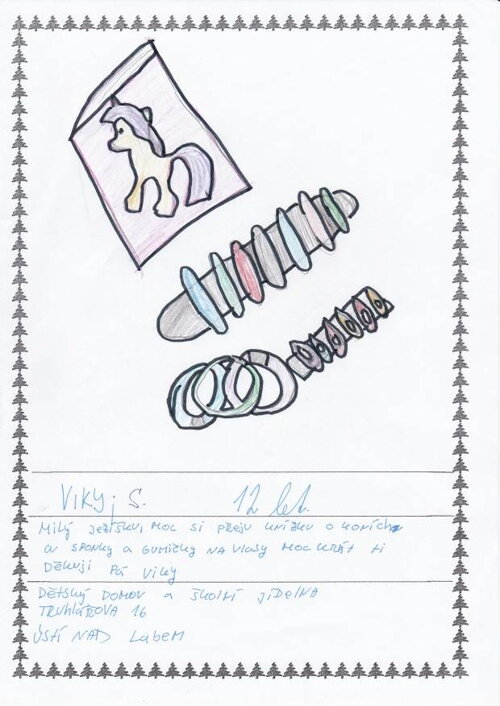 VIKY; S. 12 let.
Milý Ježíšku, moc si přeju knížku o koních
a sponky a gumičky na vlasy mockrát ti
Děkuji Pá Viky
Dětský Domov a Školní jídelna
Truhlářova 16
Ústí nad Labem